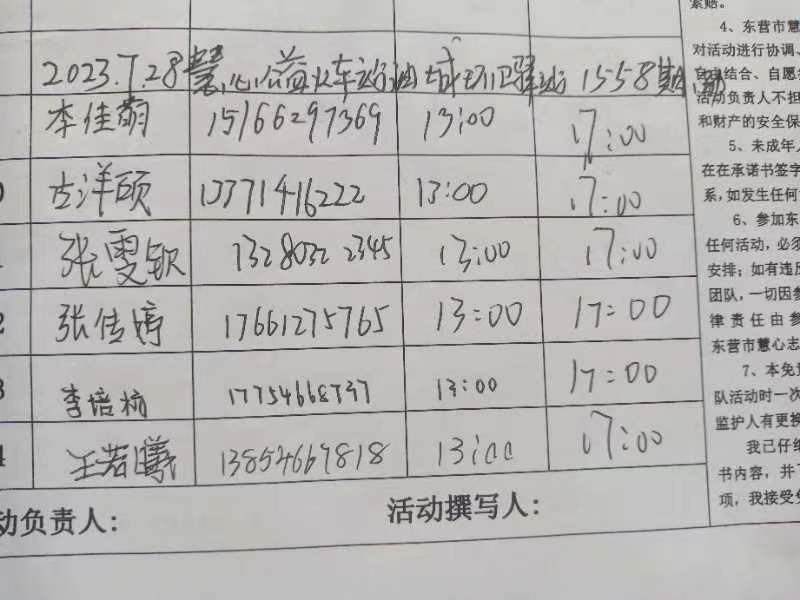 索赔。
4、东营市慧
对活动进行协调、
自由结合、自愿
活动负责人不担
和财产的安全保
5、未成年人
在在承诺书签字
系,如发生任何
6、参加东
任何活动,必须
安排;如有违反
团队,一切因参
律责任由参
东营市慧心志
7、本免责
队活动时一次
监护人有更换
我已仔细
书内容,并
项,我接受
2023.7.28慧心公益火车站油城环卫驿站1558期活动
李佳萌 15166297369 13:00 17:00
古洋硕 13371416222 13:00 17:00
张雯钦 13280322345 13:00 17:00
2 张传婷 17661275765 13:00 17:00
3 李培楠 17754668737 13:00 17:00
4 王若曦 13854669818 13:00 17:00
动负责人: 活动撰写人: